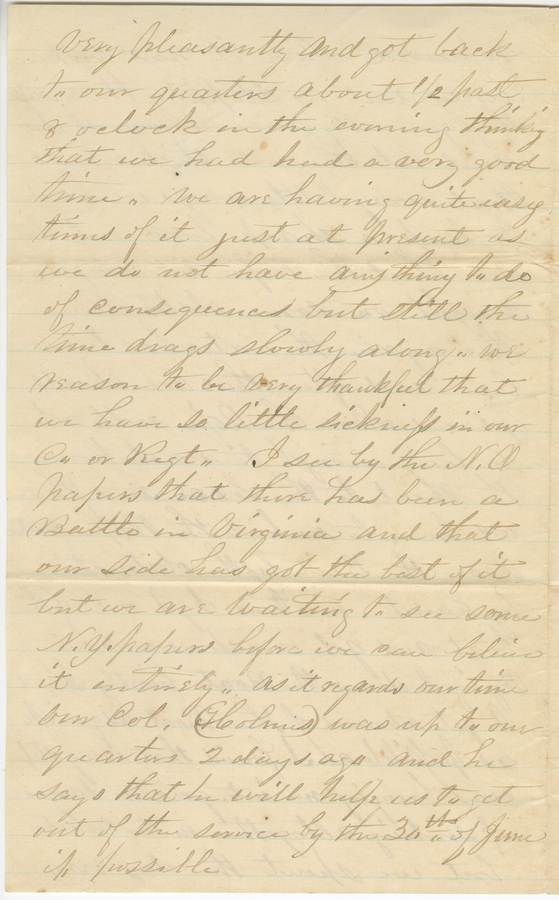 very pleasantly and got back
to our quarters about 1/2 past
8 oclock in the evening thinking
that we had had a very good
time,, we are having quite easy
times of it just at present as
we do not have anything to do
of consequences but still the
time drags slowly along,, we
reason to be very thankful that
we have so little sickness in our
Co or Regt,, I see by the N.O
papers that there has been a
Battle in Virginia and that
our side has got the best of it
but we are waiting to see some
N.Y. papers before we can believe
it entirely,, as it regards our time
our Col. (Holmes) was up to our
quarters 2 days ago and he
says that he will help us to get
out of the service by the 30th of June
if possible